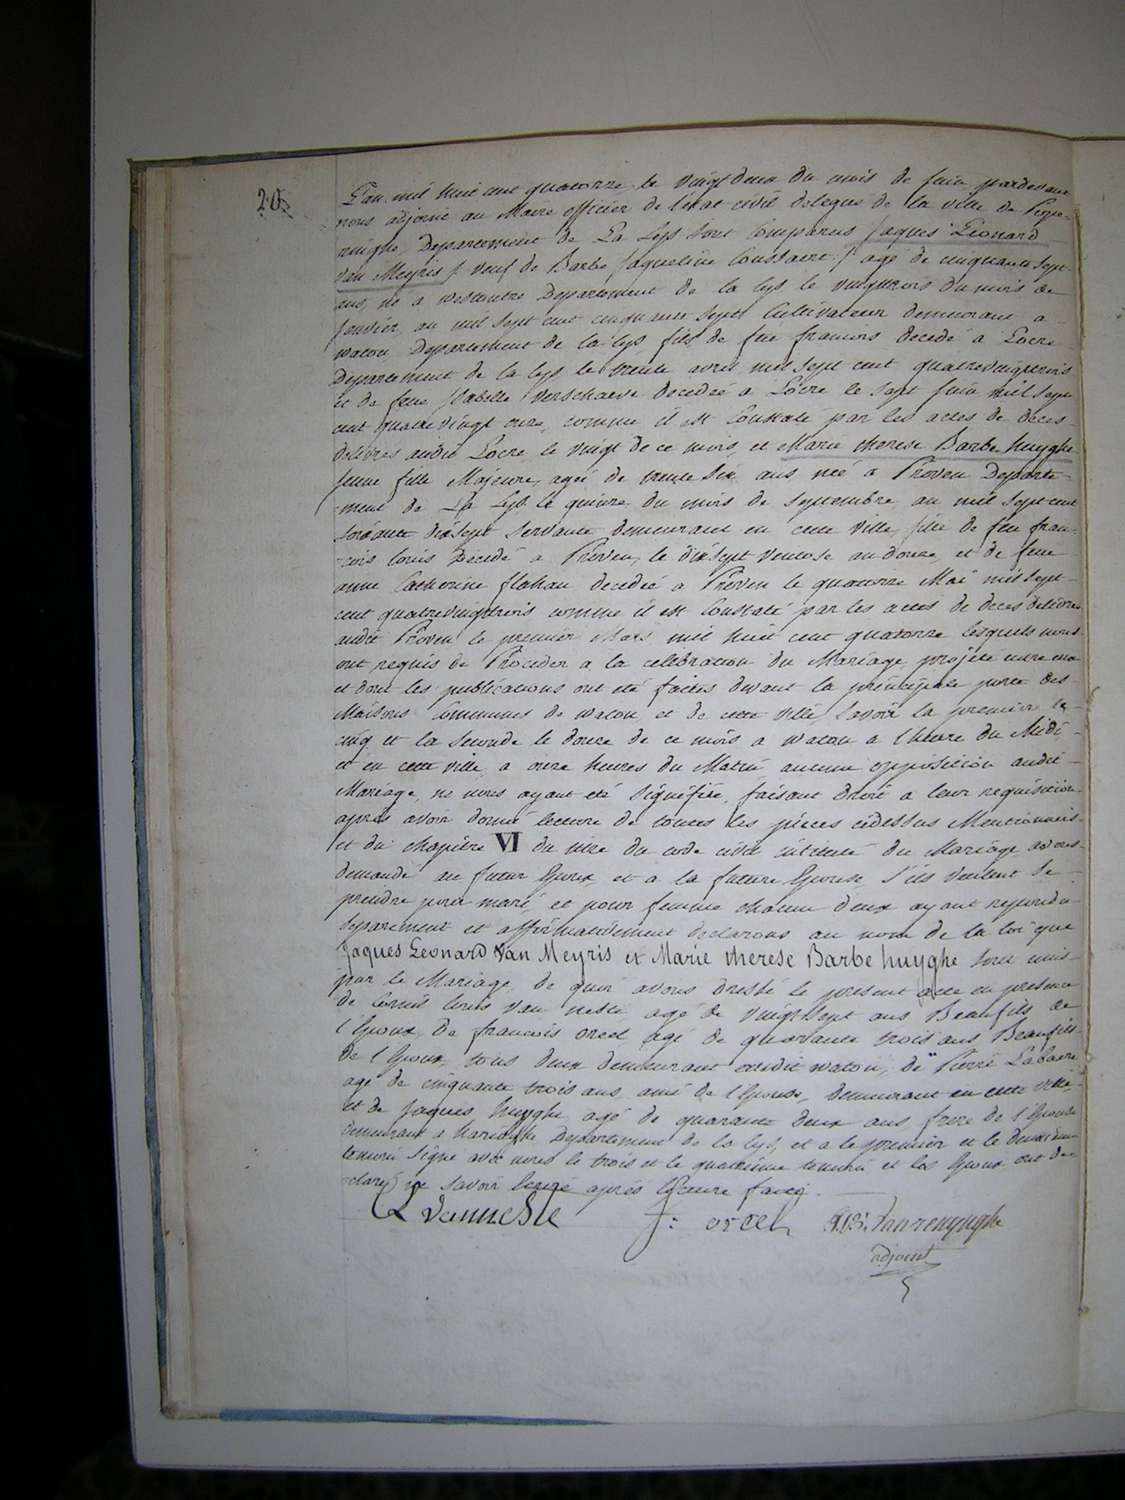 20
L'an mil huit cent quatorze le vingt deux du mois de juin pardevant
nous adjoint au Maire officier de l'etat civil delegué de la ville de Pope-
ringhe, Departement de La Lys sont comparus Jaques Léonard
Van Meyris /: veuf de Barbe Jaqueline Coussaert :/ agé de cinquante sept
ans, né a westoutre Departement de la lys le vingt trois du mois de
Janvier, au mil sept cent cinquante sept Cultivateur demeurant a
watou, Departement de la lys fils de feu francois decedé a Locre
Departement de la lys le trente avril mil sept cent quatrevingt trois
et de feue Isabelle Verschaeve decedée a Locre le sept juin mil sept
cent quatre vingt onze, comme il est Constaté par les actes de deces
delivrés audit Locre, le vingt de ce mois, et Marie therese Barbe huyghe
jeune fille Majeure, agée de trente six ans née a Proven Departe-
ment de La Lys le quinze du mois de septembre au mil sept cent
soixante dixsept servante demeurant en cette ville, fille de feu fran-
cois louis Decedé a Proven, le dixsept ventose an douze, et de feue
anne Catherine flahau decedée a Proven le quatorze Mai mil sept
cent quatrevingt trois comme il est Constaté par les actes de deces delivrés
audit Proven le premier Mars mil huit cent quatorze lesquels nous
ont requis de Proceder a la celebration du Mariage projeté entre eux
et dont les publications ont été faites devant la principale porte des
Maisons Communes de watou et de cette ville, savoir la premiere le
cinq et la seconde le douze de ce mois a watou a l'heure du Midi
et en cette ville a onze heures du Matin aucune opposition audit
Mariage, ne nous ayant été signifiée, faisant droit a leur requisition
après avoir donné lecture de toutes les pièces cidessus Mentionnées
et du chapitre VI du titre du code civil intitulé du Mariage avons
demandé au futur Epoux et a la future Epouse, s'ils veulent se
prendre pour mari et pour femme chacun deux ayant repondu
separement et affirmativement declarons au nom de la loi que
Jaques Leonard Van Meyris et Marie therese Barbe huyghe sont unis
par le Mariage, de quoi avons dressé le present acte en presence
de louis van neste agé de vingt sept ans Beaufils de
l'Epoux, De francois orcel agé de quarante trois ans Beaufils
de l'Epoux, tous deux demeurant audit watou, de Pierre Labaere
agé de cinquante trois ans, ami de l'Epouse, demeurant en cette ville
et de Jaques huyghe, agé de quarante deux ans frere de l'Epouse
demeurant a Departement de la lys, et a le premier et le deuxieme
temoin signé avec nous le trois et le quatrieme temoin et les Epoux ont de-
claré ne savoir lecture faite.
L Vanneste F: orcel vanrenynghe
adjoint